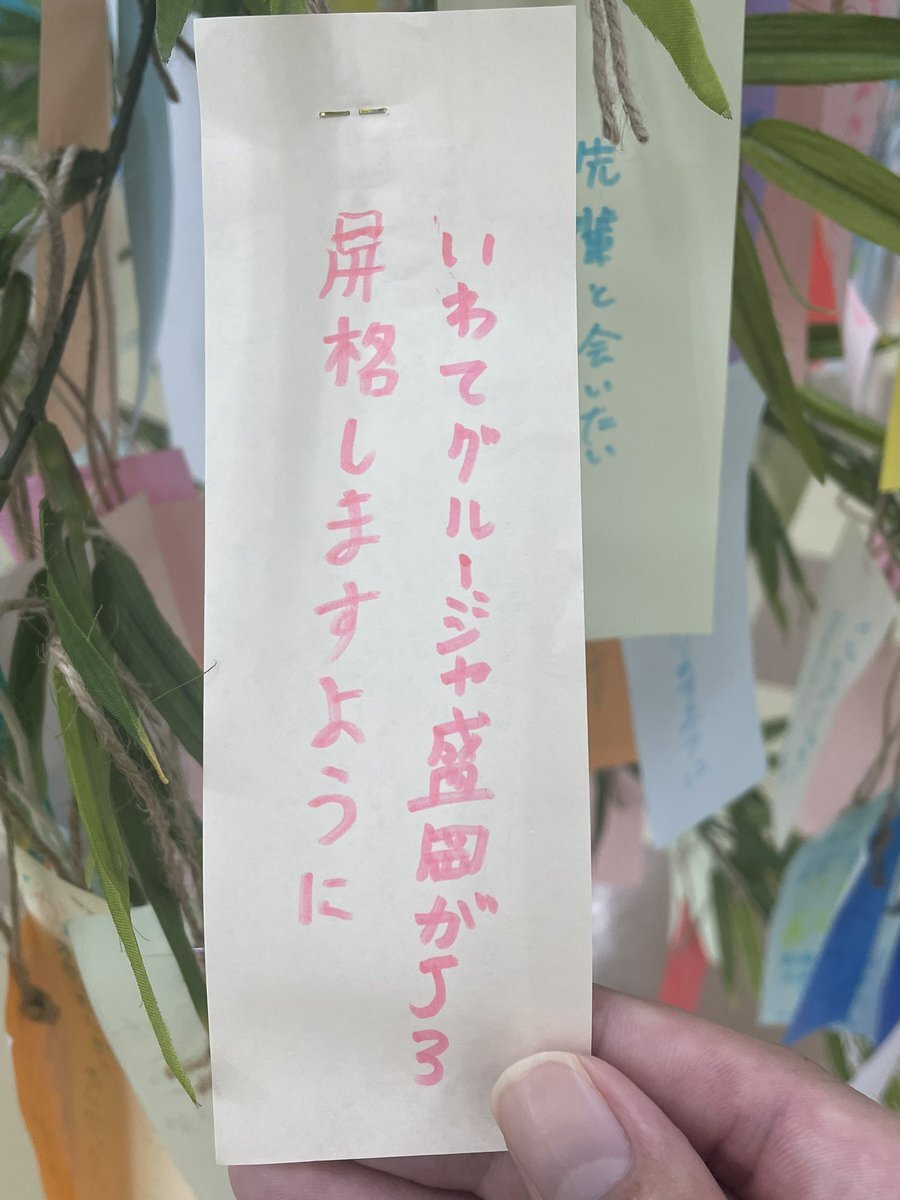 いわてグルージャ盛岡がJ3
屏格しますように
先輩と会いたい